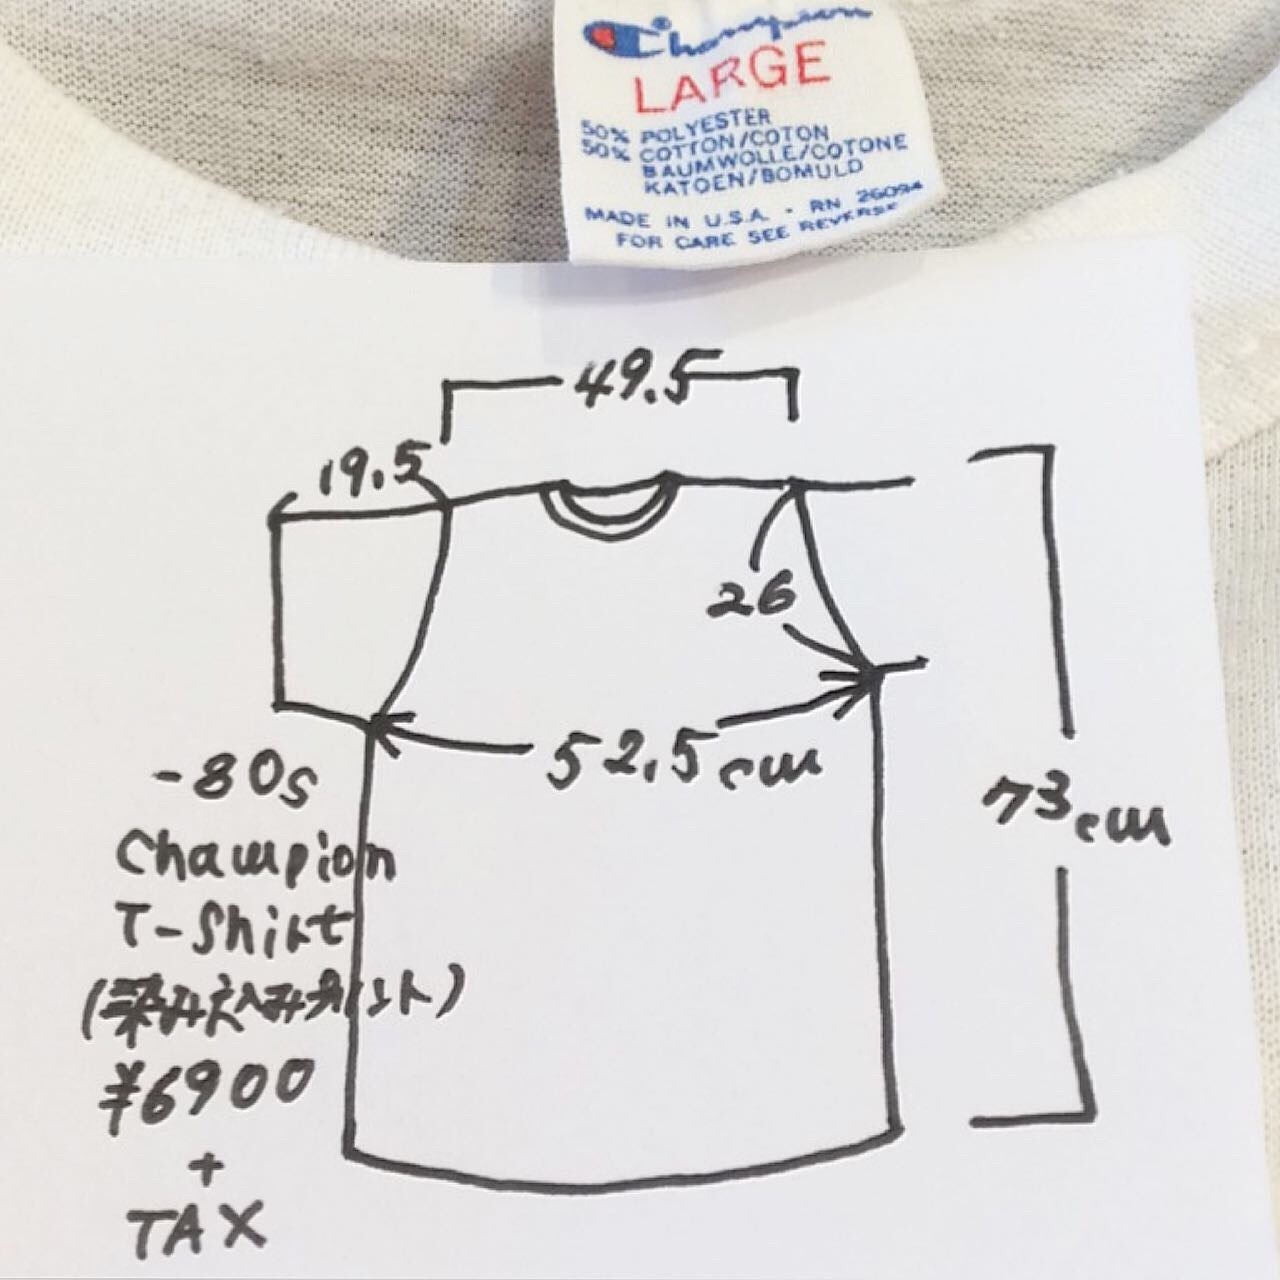 Champion
LARGE
50% POLYESTER
50% COTTON/COTON
BAUMWOLLE/COTONE
KATOEN/BOMULD
MADE IN U.S.A. - RN 26094
FOR CARE SEE REVERSE
49.5
19.5
26
52.5cm
73cm
-80s
Champion
T-Shirt
(染み込みプリント)
¥6900
+
TAX